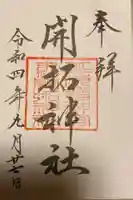 奉拝
開拓神社
令和四年九月廿二日